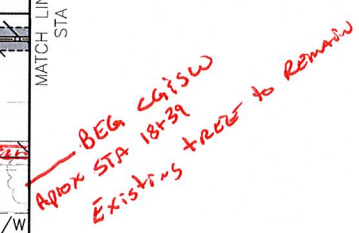 MATCH LIN
STA
BEG CG&SW
Aprox STA 18+39
Existing tree to REMAIN
/W